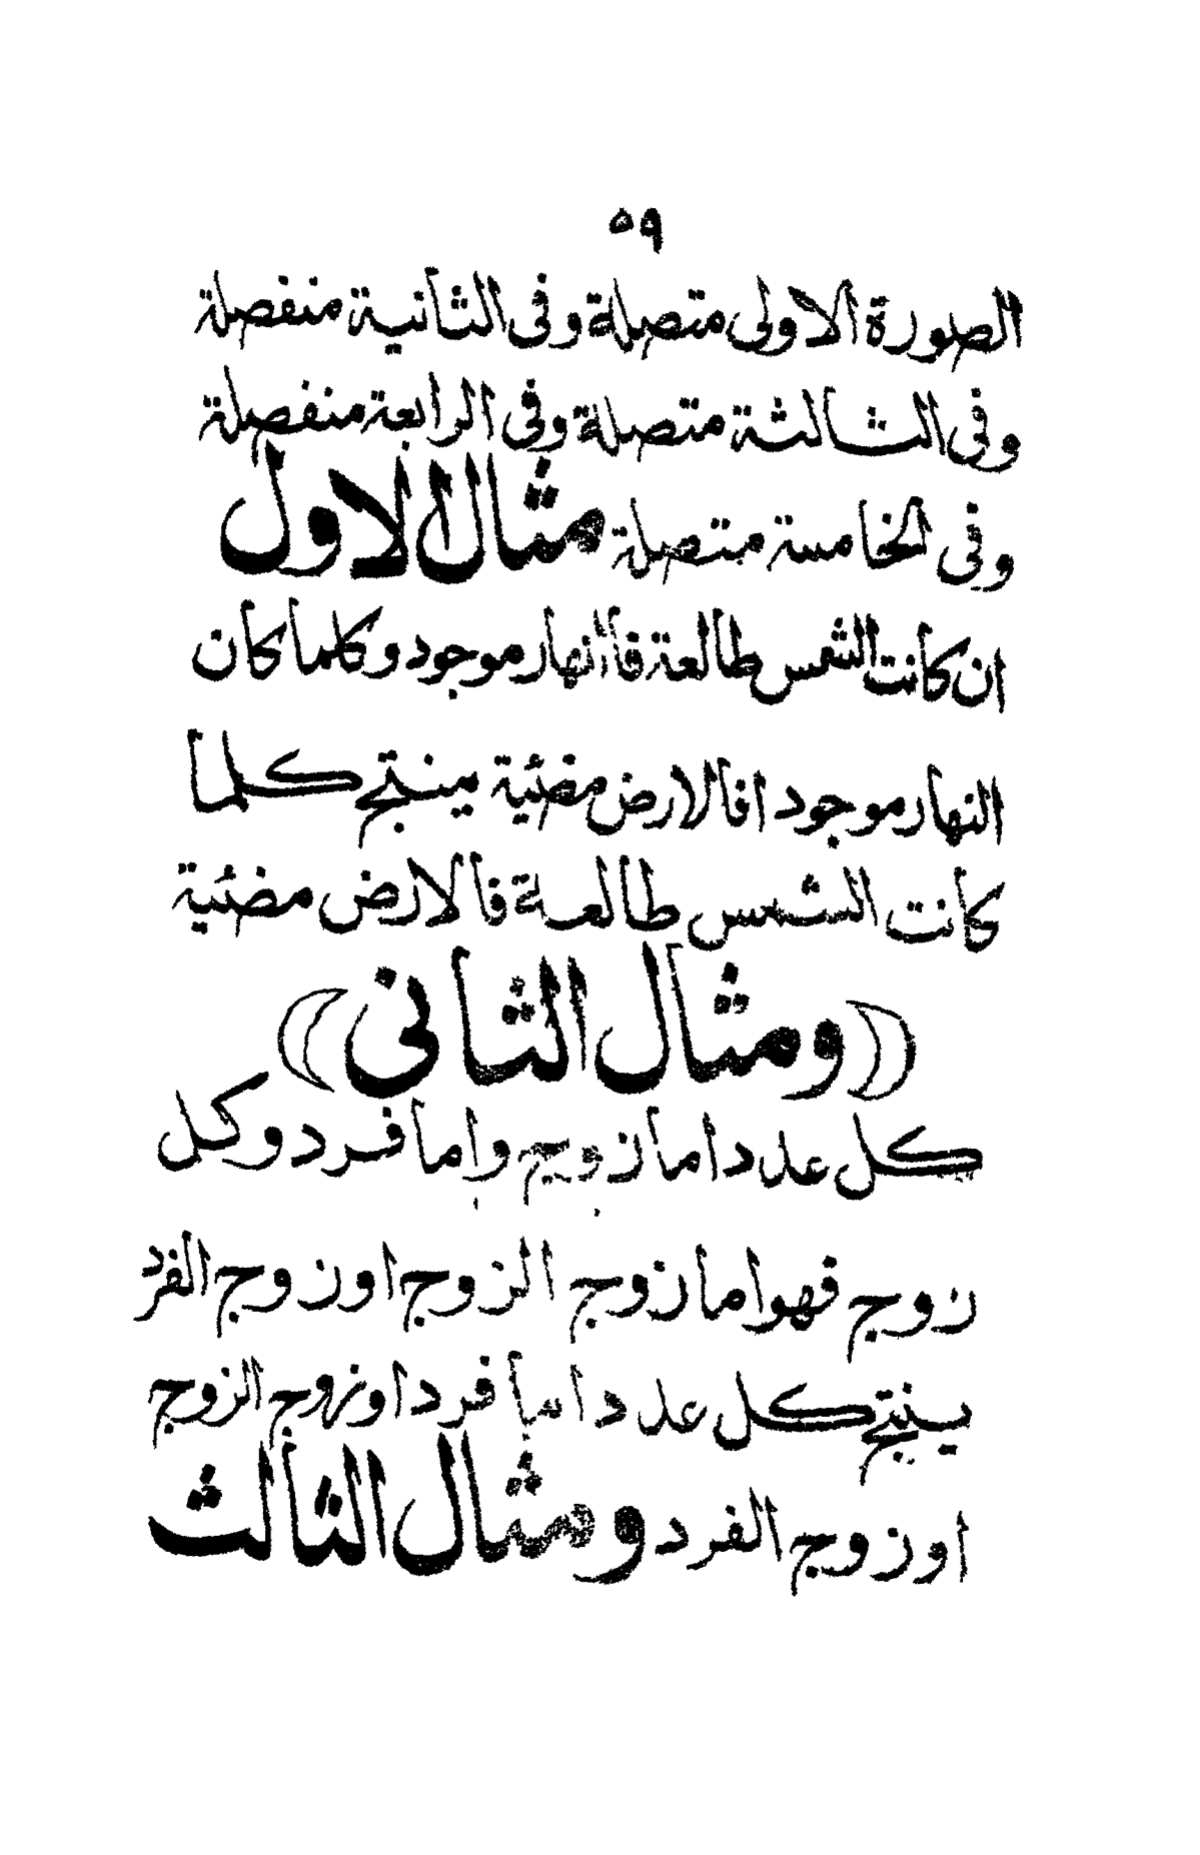 ٥٩
الصورة الاولى متصلة وفى الثانية منفصلة
وفى الثالثة متصلة وفى الرابعة منفصلة
وفى الخامسة متصلة مثال الاول
ان كانت الشمس طالعة فالنهار موجود وكلما كان
النهار موجودا فالارض مضئية ينتج كلما
كانت الشمس طالعة فالارض مضئية
(ومثال الثانى)
كل عدد اما زوج واما فرد وكل
زوج فهو اما زوج الزوج او زوج الفرد
ينتج كل عدد اما فرد او زوج الزوج
او زوج الفرد ومثال الثالث